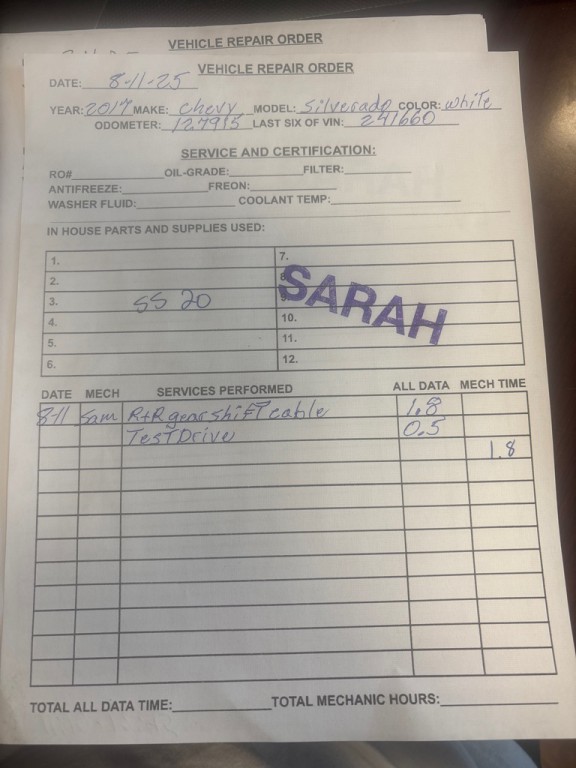 VEHICLE REPAIR ORDER
VEHICLE REPAIR ORDER
DATE: 8-11-25
YEAR: 2017 MAKE: Chevy MODEL: Silverado COLOR: White
ODOMETER: 127915 LAST SIX OF VIN: 241660
SERVICE AND CERTIFICATION:
RO# OIL-GRADE: FILTER:
ANTIFREEZE: FREON:
WASHER FLUID: COOLANT TEMP:
IN HOUSE PARTS AND SUPPLIES USED:
1. 7.
2.
3. SS 20
4. 10.
5. 11.
6. 12.
SARAH
DATE MECH SERVICES PERFORMED ALL DATA MECH TIME
8-11 Sam R+R gear shift cable 1.8
Test Drive 0.5
1.8
TOTAL ALL DATA TIME: TOTAL MECHANIC HOURS: